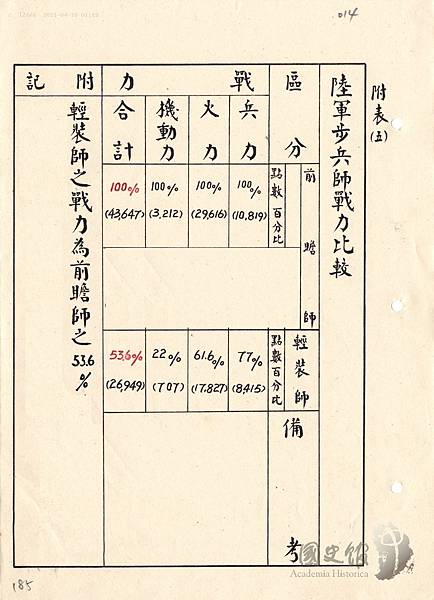 014
附表(五)
陸軍步兵師戰力比較
區分
戰力
兵力
火力
機動力
合計
附記
前瞻師
點數百分比
100%
(10,819)
100%
(29,616)
100%
(3,212)
100%
(43,647)
輕裝師
點數百分比
77%
(8,415)
61.6%
(17,827)
22%
(707)
53.6%
(26,949)
備考
輕裝師之戰力為前瞻師之53.6%
國史館
Academia Historica
185